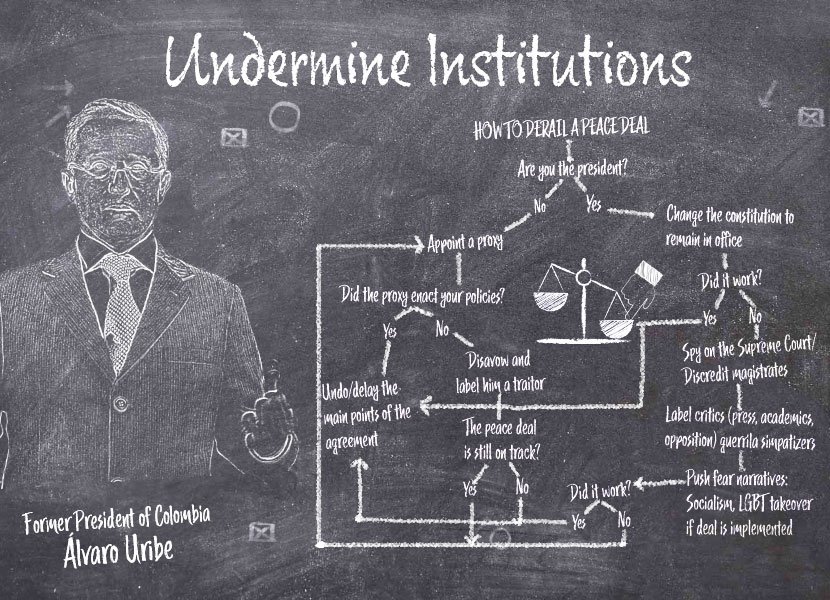 Undermine Institutions
HOW TO DERAIL A PEACE DEAL
Are you the president?
No
Yes
Change the constitution to
remain in office
Appoint a proxy
Did it work?
Did the proxy enact your policies?
Yes
No
Yes
No
Spy on the Supreme Court/
Discredit magistrates
Disavow and
label him a traitor
Undo/delay the
main points of the
agreement
Label critics (press, academics,
opposition) guerrila simpatizers
The peace deal
is still on track?
Push fear narratives:
Socialism, LGBT takeover
if deal is implemented
Yes
No
Did it work?
Yes
No
Former President of Colombia
Álvaro Uribe